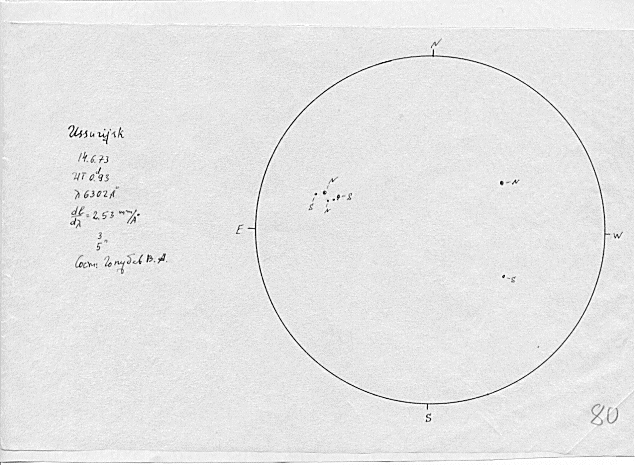 N
Ussurijsk
14.6.73
UT 0.93
λ 6302 Å
dl/dλ = 2.53 mm/Å
3
5"
Голубев В. А.
N
S
N
S
N
E
W
S
S
80